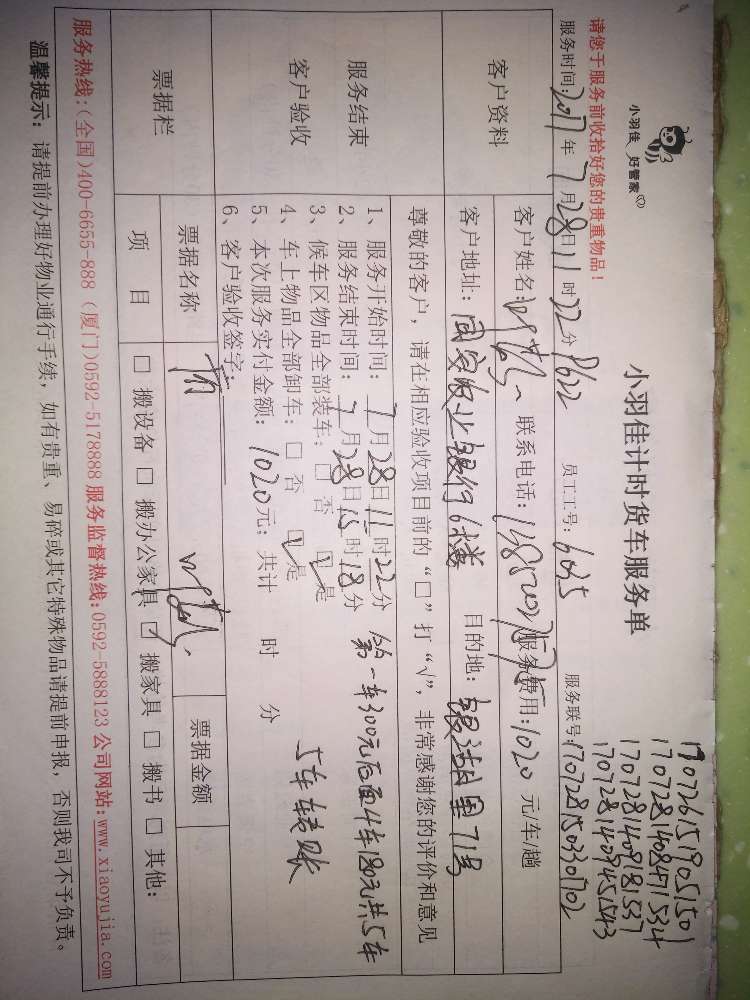 小羽佳 好管家
小羽佳计时货车服务单
1707261519051501
17072814084715324
1707281409181537
1707281409451543
请您于服务前收拾好您的贵重物品！
服务时间:2017年7月28日11时22分 P622 员工工号: 6035 服务联号:1707281503310702
客户资料
客户姓名: 联系电话: 服务费用:1020元/车/趟
客户地址: 同安农业银行6楼 目的地: 71号
服务结束
客户验收
尊敬的客户，请在相应验收项目前的“□”打“√”，非常感谢您的评价和意见
1、服务开始时间: 7月28日11时22分
2、服务结束时间: 7月28日15时18分
第一车300元后面4车180元共5车
3、候车区物品全部装车:□ 否 ☑ 是
4、车上物品全部卸车:□ 否 ☑ 是
5车转账
5、本次服务实付金额: 1020元; 共计 时 分
6、客户验收签字:
票据栏
票据名称 票据金额
项 目 □ 搬设备 □ 搬办公家具 ☑ 搬家具 □ 搬书 □ 其他:
服务热线:(全国)400-6655-888 (厦门)0592-5178888 服务监督热线:0592-5888123 公司网站:www.xiaoyujia.com
温馨提示: 请提前办理好物业通行手续，如有贵重、易碎或其它特殊物品请提前申报，否则我司不予负责。